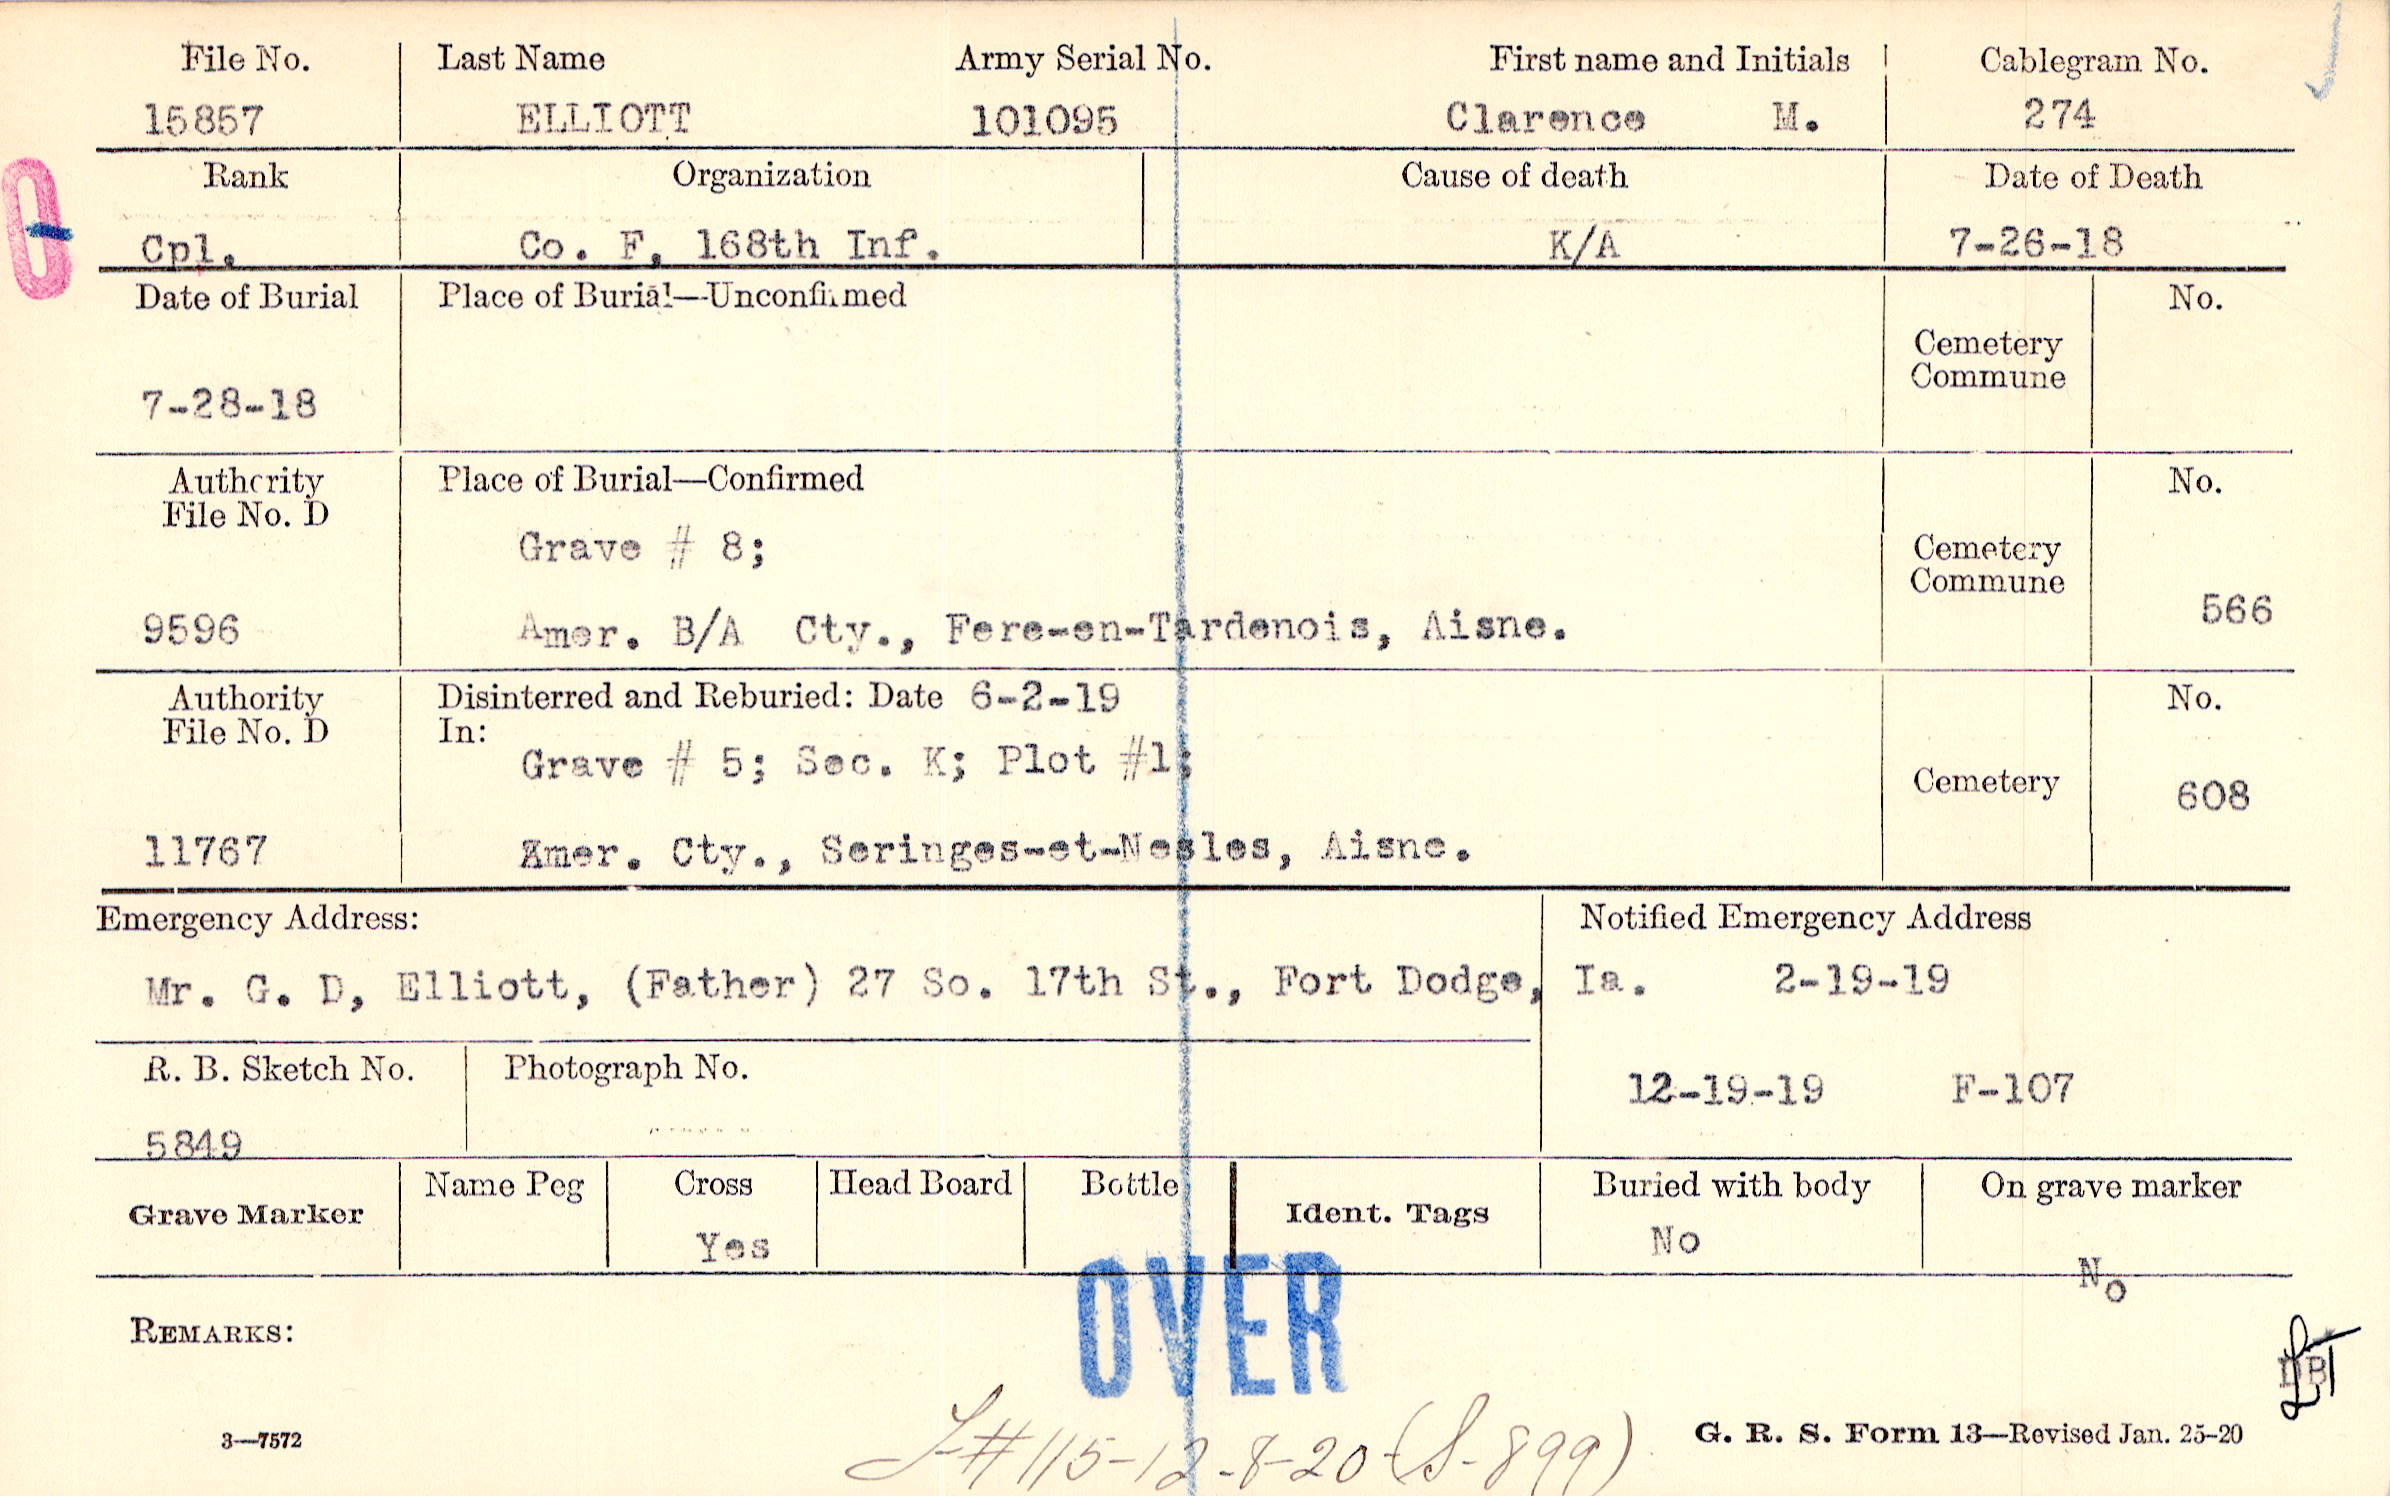 File No. Last Name Army Serial No. First name and Initials Cablegram No.
15857 ELLIOTT 101095 Clarence M. 274
Rank Organization Cause of death Date of Death
Cpl. Co. F, 168th Inf. K/A 7-26-18
Date of Burial Place of Burial—Unconfirmed No.
Cemetery
Commune
7-28-18
Authority Place of Burial—Confirmed No.
File No. D
Grave # 8;
Cemetery
Commune
566
9596 Amer. B/A Cty., Fere-en-Tardenois, Aisne.
Authority Disinterred and Reburied: Date 6-2-19 No.
File No. D In:
Grave # 5; Sec. K; Plot #1;
Cemetery 608
11767 Amer. Cty., Seringes-et-Nesles, Aisne.
Emergency Address: Notified Emergency Address
Mr. G. D, Elliott, (Father) 27 So. 17th St., Fort Dodge, Ia. 2-19-19
R. B. Sketch No. Photograph No.
12-19-19 F-107
5849
Name Peg Cross Head Board Bottle Buried with body On grave marker
Grave Marker Ident. Tags
Yes No No
OVER
REMARKS:
#115-12-8-20-(S-899)
3—7572 G. R. S. Form 13—Revised Jan. 25-20